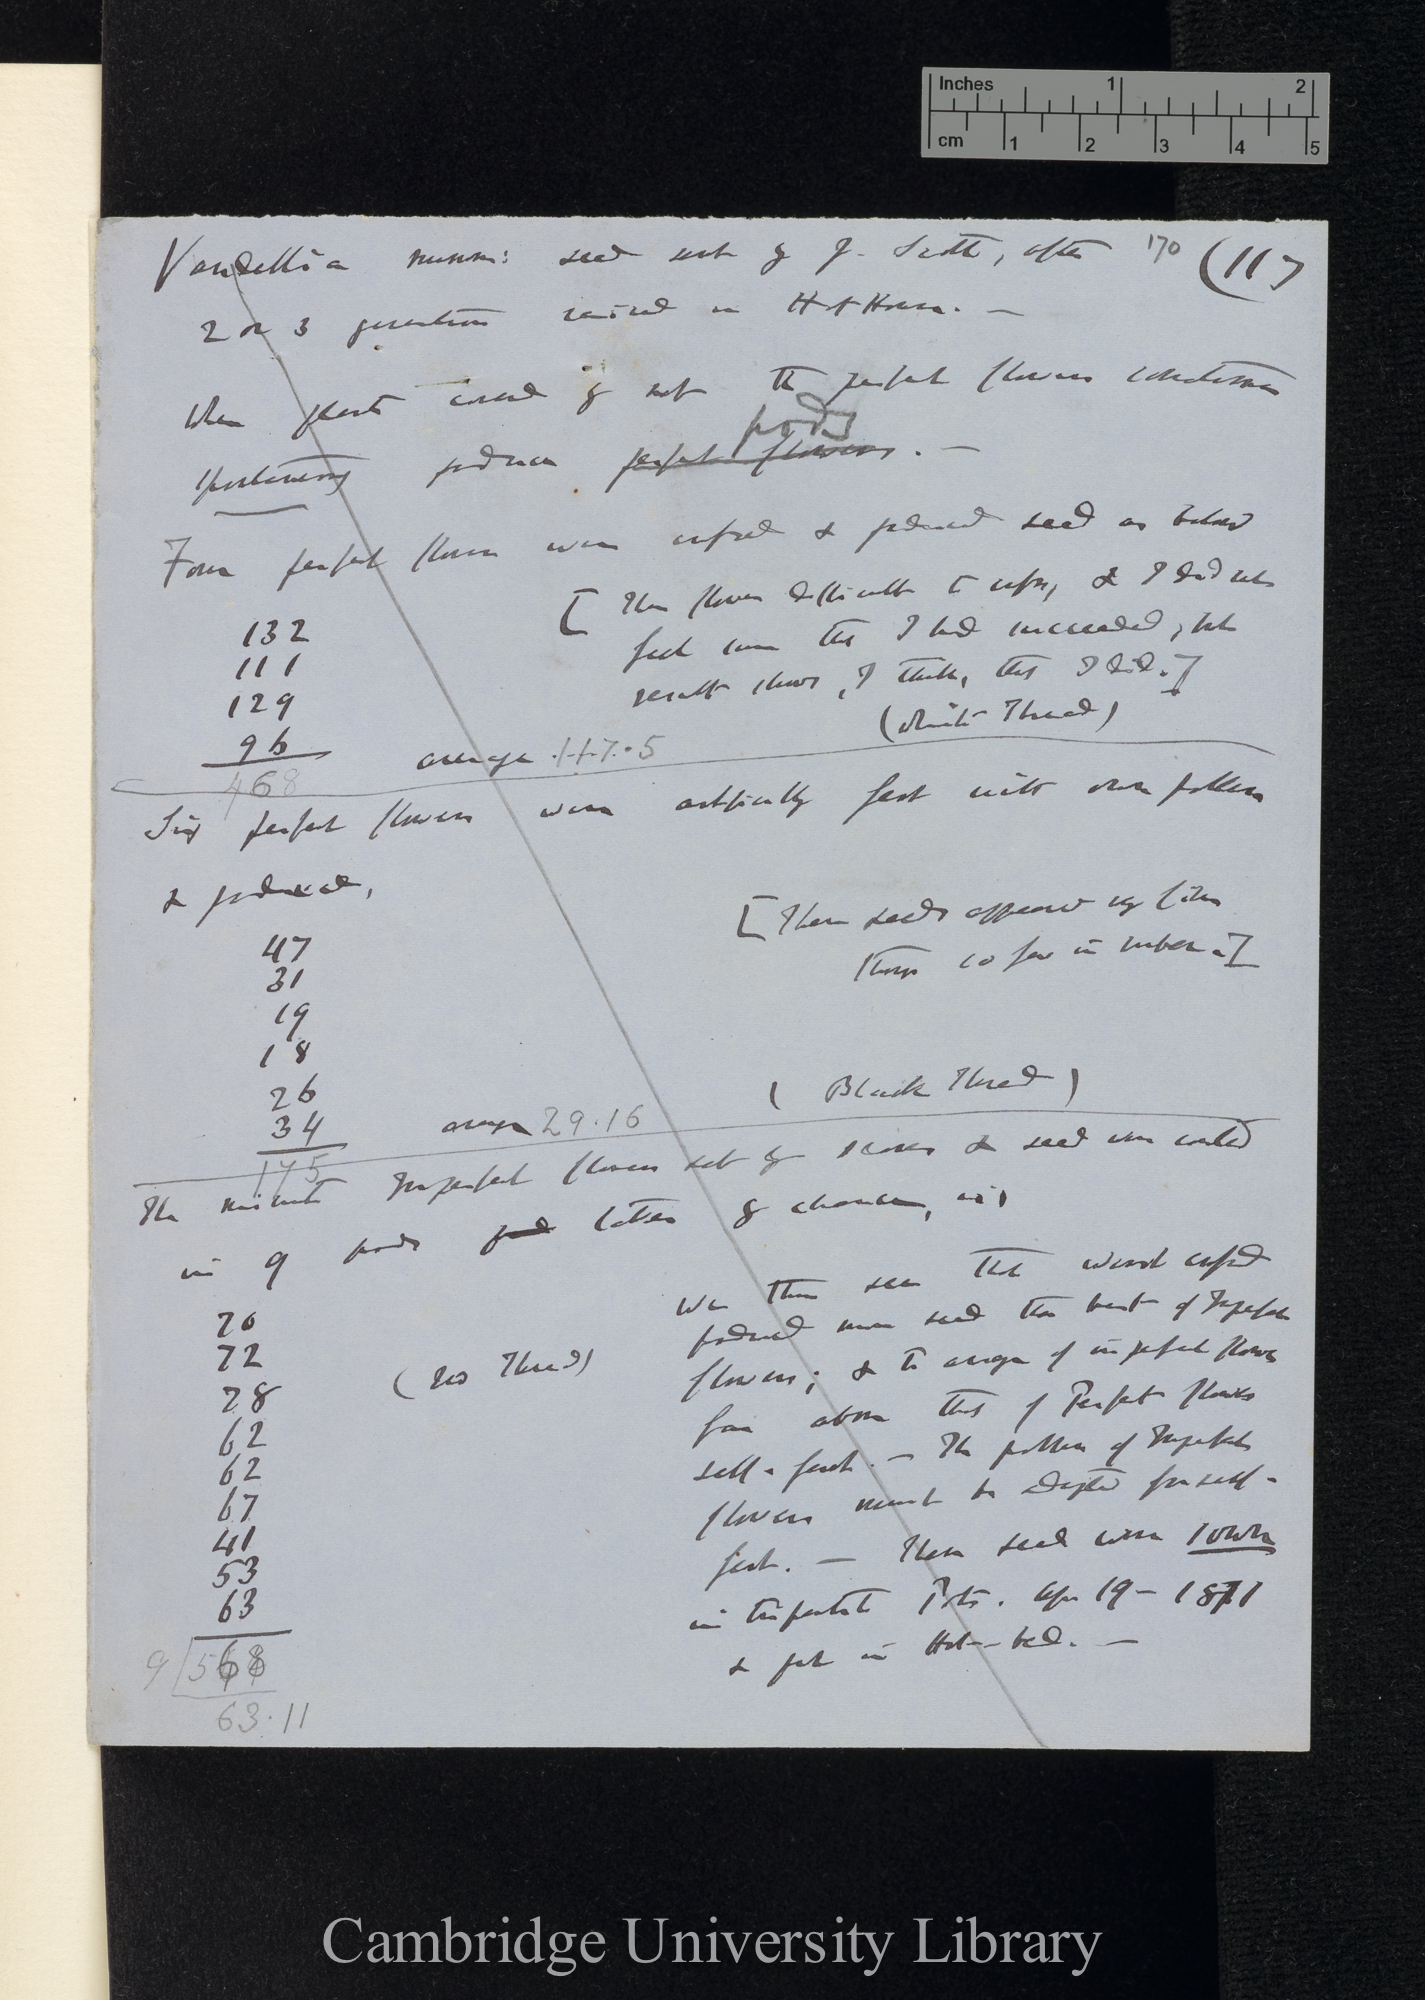 Inches 1 2
cm 1 2 3 4 5
Vandellia numm: seed sent by J. Scott, after 170 (11)
2 or 3 generations raised in Hot House. —
When plants covered by net the perfect flowers sometimes
spontaneously produce perfect flowers pods. —
Four perfect flowers were crossed & produced seed as below
[These flowers difficult to cross, & I did not
132
feel sure that I had succeeded, but
111
result shows, I think, that I did.]
129
(White Thread)
96 average 117.5
468
Six perfect flowers were artificially fert with own pollen
& produced,
[These seeds appeared very fine
47
though so few in number.]
31
19
18
26
(Black Thread)
34 average 29.16
175
The minute Imperfect flowers set by scores & seed were counted
in 9 pods pod taken by chance, viz
We thus see that worst crossed
70
produced more seed than best of Imperfect
72
(no Thread)
flowers; & the average of imperfect flowers
78
far above that of Perfect flowers
62
self-fert. — The pollen of Imperfect
62
flowers must be adapted for self-
67
fert. — These seeds were sown
41
in tripartite Pots. Apr 19 — 1871
53
& put in Hot-bed. —
63
9 568
63.11
Cambridge University Library